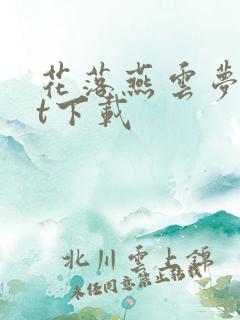 花落燕雲夢
t下載
北川雲上錦
未经同意禁止转载